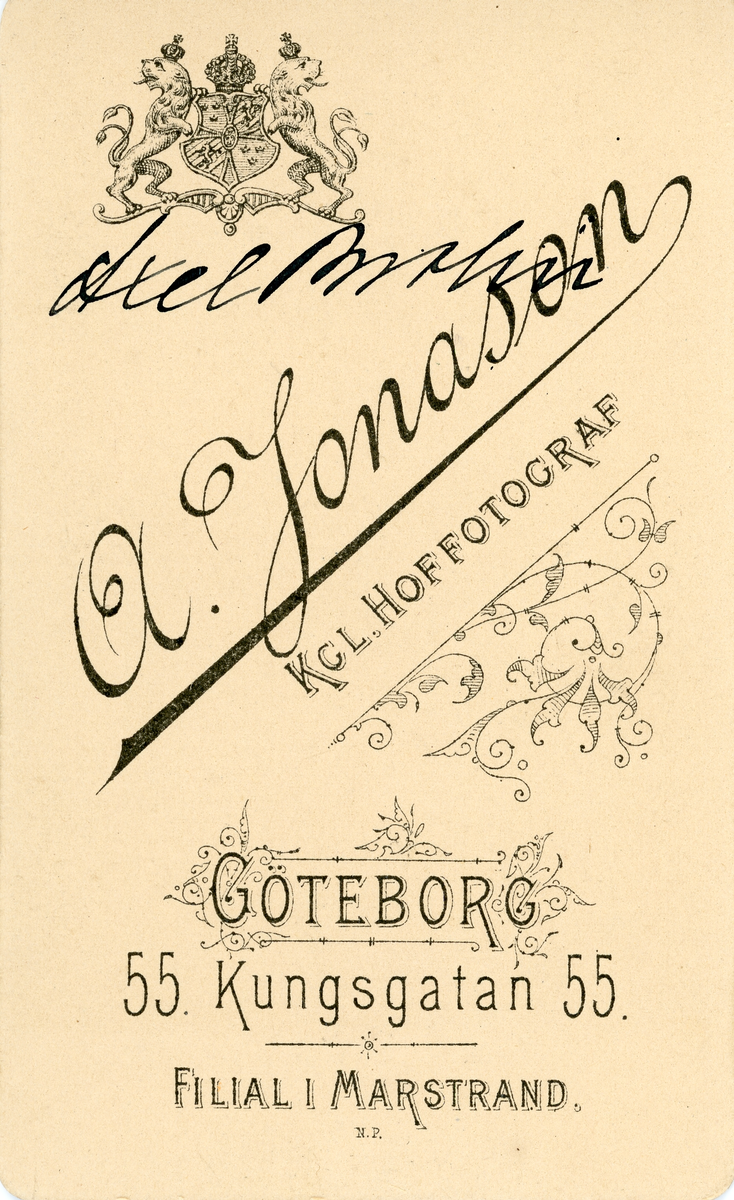 Axel
A. Jonason
KGL. HOFFOTOGRAF
GÖTEBORG
55. Kungsgatan 55.
FILIAL I MARSTRAND.
N.P.